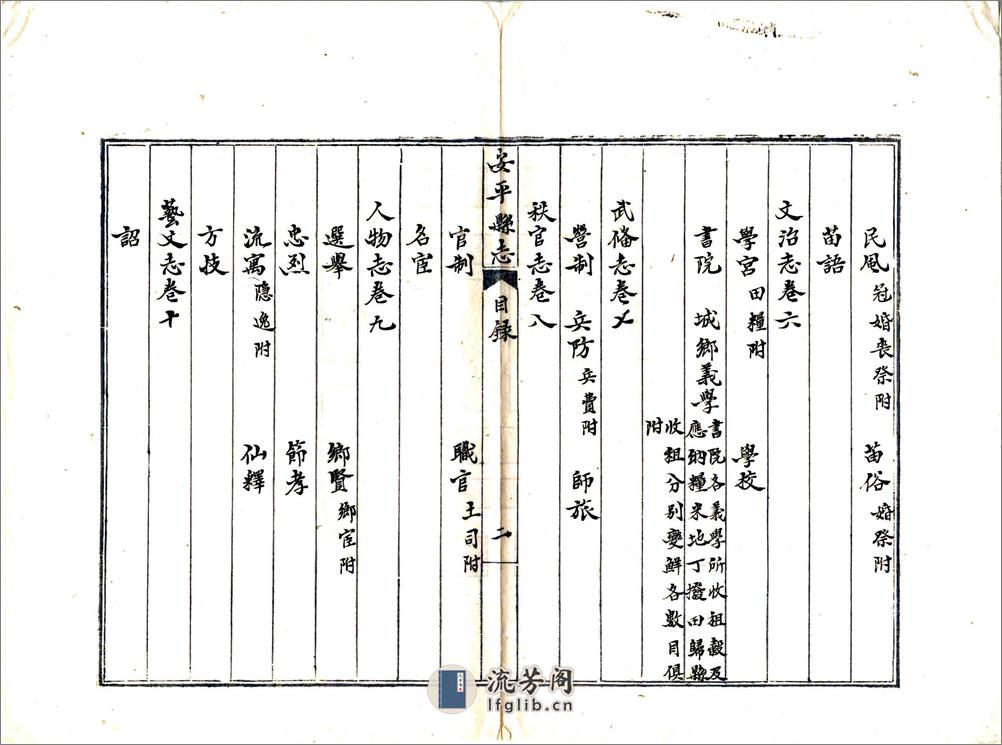 民風冠婚喪祭附 苗俗婚祭附
苗語
文治志卷六
學宮田糧附 學校
書院 城鄉義學書院各義學所收租穀及
應納糧米地丁撥田歸縣
收租分別變鮮各數目俱
附
武俻志卷七
營制 兵防兵費附 師旅
秩官志卷八
安平縣志 目録 二
官制 職官土司附
名宦
人物志卷九
選舉 鄉賢鄉宦附
忠烈 節孝
流寓隱逸附 仙釋
方技
藝文志卷十
詔
流芳阁
lfglib.cn